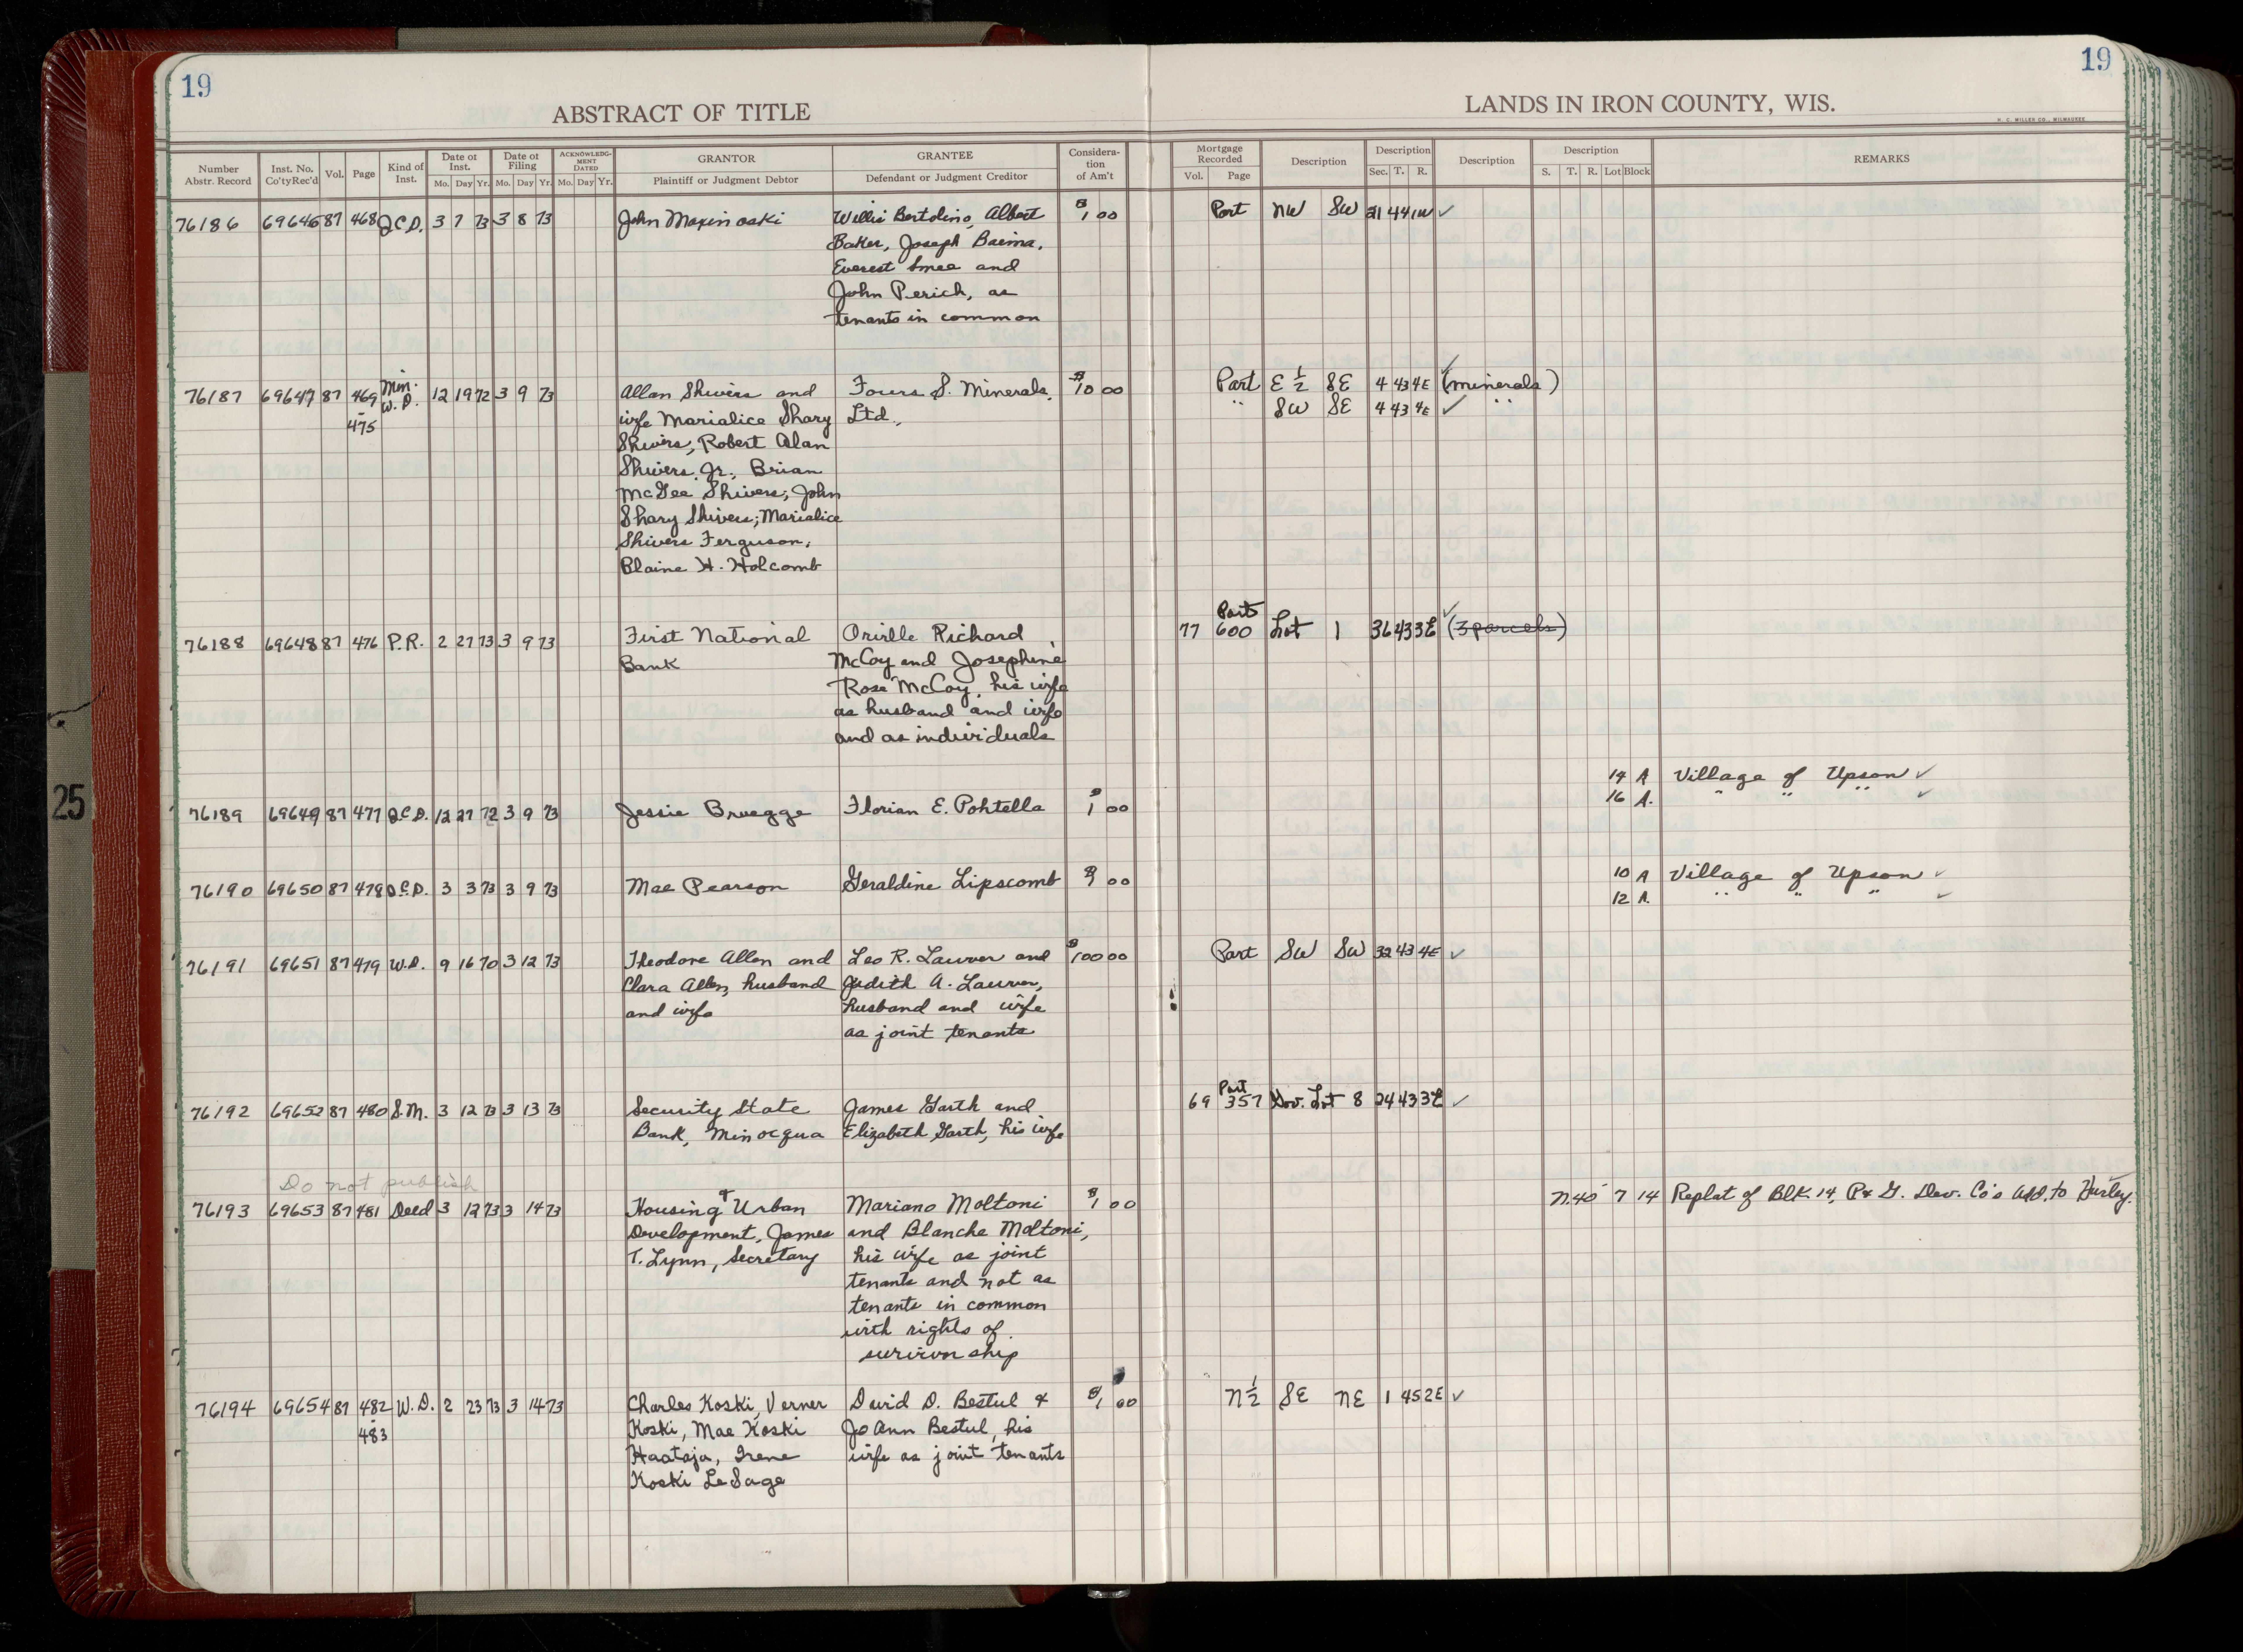 19
19
ABSTRACT OF TITLE
LANDS IN IRON COUNTY, WIS.
H. C. MILLER CO., MILWAUKEE
Number Abstr. Record
Inst. No. Co'ty Rec'd
Vol.
Page
Kind of Inst.
Date of Inst. Mo. Day Yr.
Date of Filing Mo. Day Yr.
ACKNOWLEDGMENT DATED Mo. Day Yr.
GRANTOR Plaintiff or Judgment Debtor
GRANTEE Defendant or Judgment Creditor
Consideration of Am't
Mortgage Recorded Vol. Page
Description
Description Sec. T. R.
Description
Description S. T. R. Lot Block
REMARKS
76186 69646 87 468 Q.C.D. 3 7 73 3 8 73 John Maxinoski Willis Bertolino, Albert $1 00 Part NW SW 21 44 1W ✓
Baker, Joseph Baima,
Everest Smee and
John Perich, as
tenants in common
76187 69647 87 469 Min. W.D. 12 19 72 3 9 73 Allan Shivers and Fours S. Minerals, $10 00 Part E 1/2 SE 4 43 4E ✓ (minerals)
- 475 wife Marialice Shary Ltd., " SW SE 4 43 4E ✓ "
Shivers, Robert Alan
Shivers, Jr., Brian
McGee Shivers; John
Shary Shivers; Marialice
Shivers Ferguson,
Blaine H. Holcomb
76188 69648 87 476 P.R. 2 27 73 3 9 73 First National Orville Richard 77 Part 600 Lot 1 36 43 3E ✓ (3 parcels)
Bank McCoy and Josephine
Rose McCoy, his wife
as husband and wife
and as individuals
14 A Village of Upson ✓
16 A. " " " ✓
76189 69649 87 477 Q.C.D. 12 27 72 3 9 73 Jessie Bruegge Florian E. Pohtella $1 00
76190 69650 87 478 Q.C.D. 3 3 73 3 9 73 Mae Pearson Geraldine Lipscomb $1 00 10 A Village of Upson ✓
12 A. " " " ✓
76191 69651 87 479 W.D. 9 16 70 3 12 73 Theodore Allen and Leo R. Lauver and $100 00 Part SW SW 32 43 4E ✓
Clara Allen, husband Judith A. Lauver,
and wife husband and wife
as joint tenants
76192 69652 87 480 S.M. 3 12 73 3 13 73 Security State James Garth and 69 Part 357 Gov. Lot 8 24 43 3E ✓
Bank, Minocqua Elizabeth Garth, his wife
Do not publish
76193 69653 87 481 Deed 3 12 73 3 14 73 Housing & Urban Mariano Moltoni $1 00 N.40' 7 14 Replat of Blk 14, P & G. Dev. Co's Add. to Hurley.
Development, James and Blanche Moltoni,
T. Lynn, Secretary his wife as joint
tenants and not as
tenants in common
with rights of
survivorship
76194 69654 87 482 W.D. 2 23 73 3 14 73 Charles Koski, Verner David D. Bestul & $1 00 N 1/2 SE NE 1 45 2E ✓
- 483 Koski, Mae Koski Jo Ann Bestul, his
Haataja, Irene wife as joint tenants
Koski LeSage
25